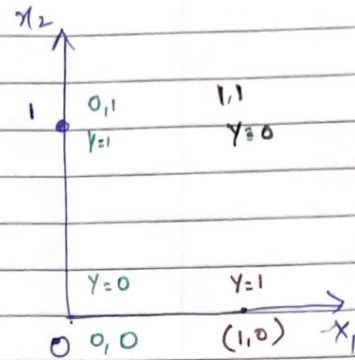 x2
1
0,1 1,1
Y=1 Y=0
Y=0 Y=1
0 0,0 (1,0) X1